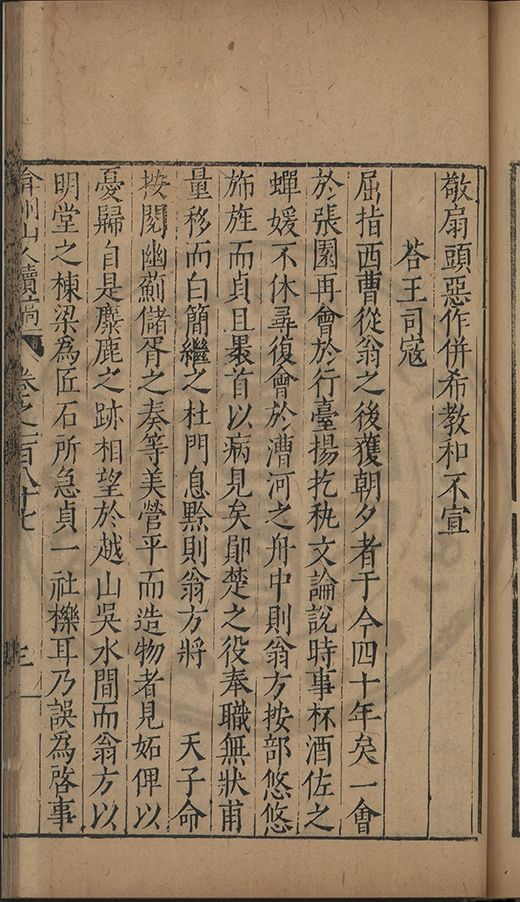 敬扇頭惡作併希教和不宣
荅王司寇
屈指西曹從翁之後獲朝夕者于今四十年矣一會
於張園再會於行臺揚扢秇文論說時事杯酒佐之
蟬媛不休尋復會於漕河之舟中則翁方按部悠悠
斾旌而貞且纍首以病見矣鄖楚之役奉職無狀甫
量移而白簡繼之杜門息黥則翁方將　天子命
按閱幽薊儲胥之奏等美營平而造物者見妬俾以
憂歸自是麋鹿之跡相望於越山吳水間而翁方以
明堂之棟梁為匠石所急貞一社櫟耳乃誤為啓事
弇州山人續稿 卷之一百八十七